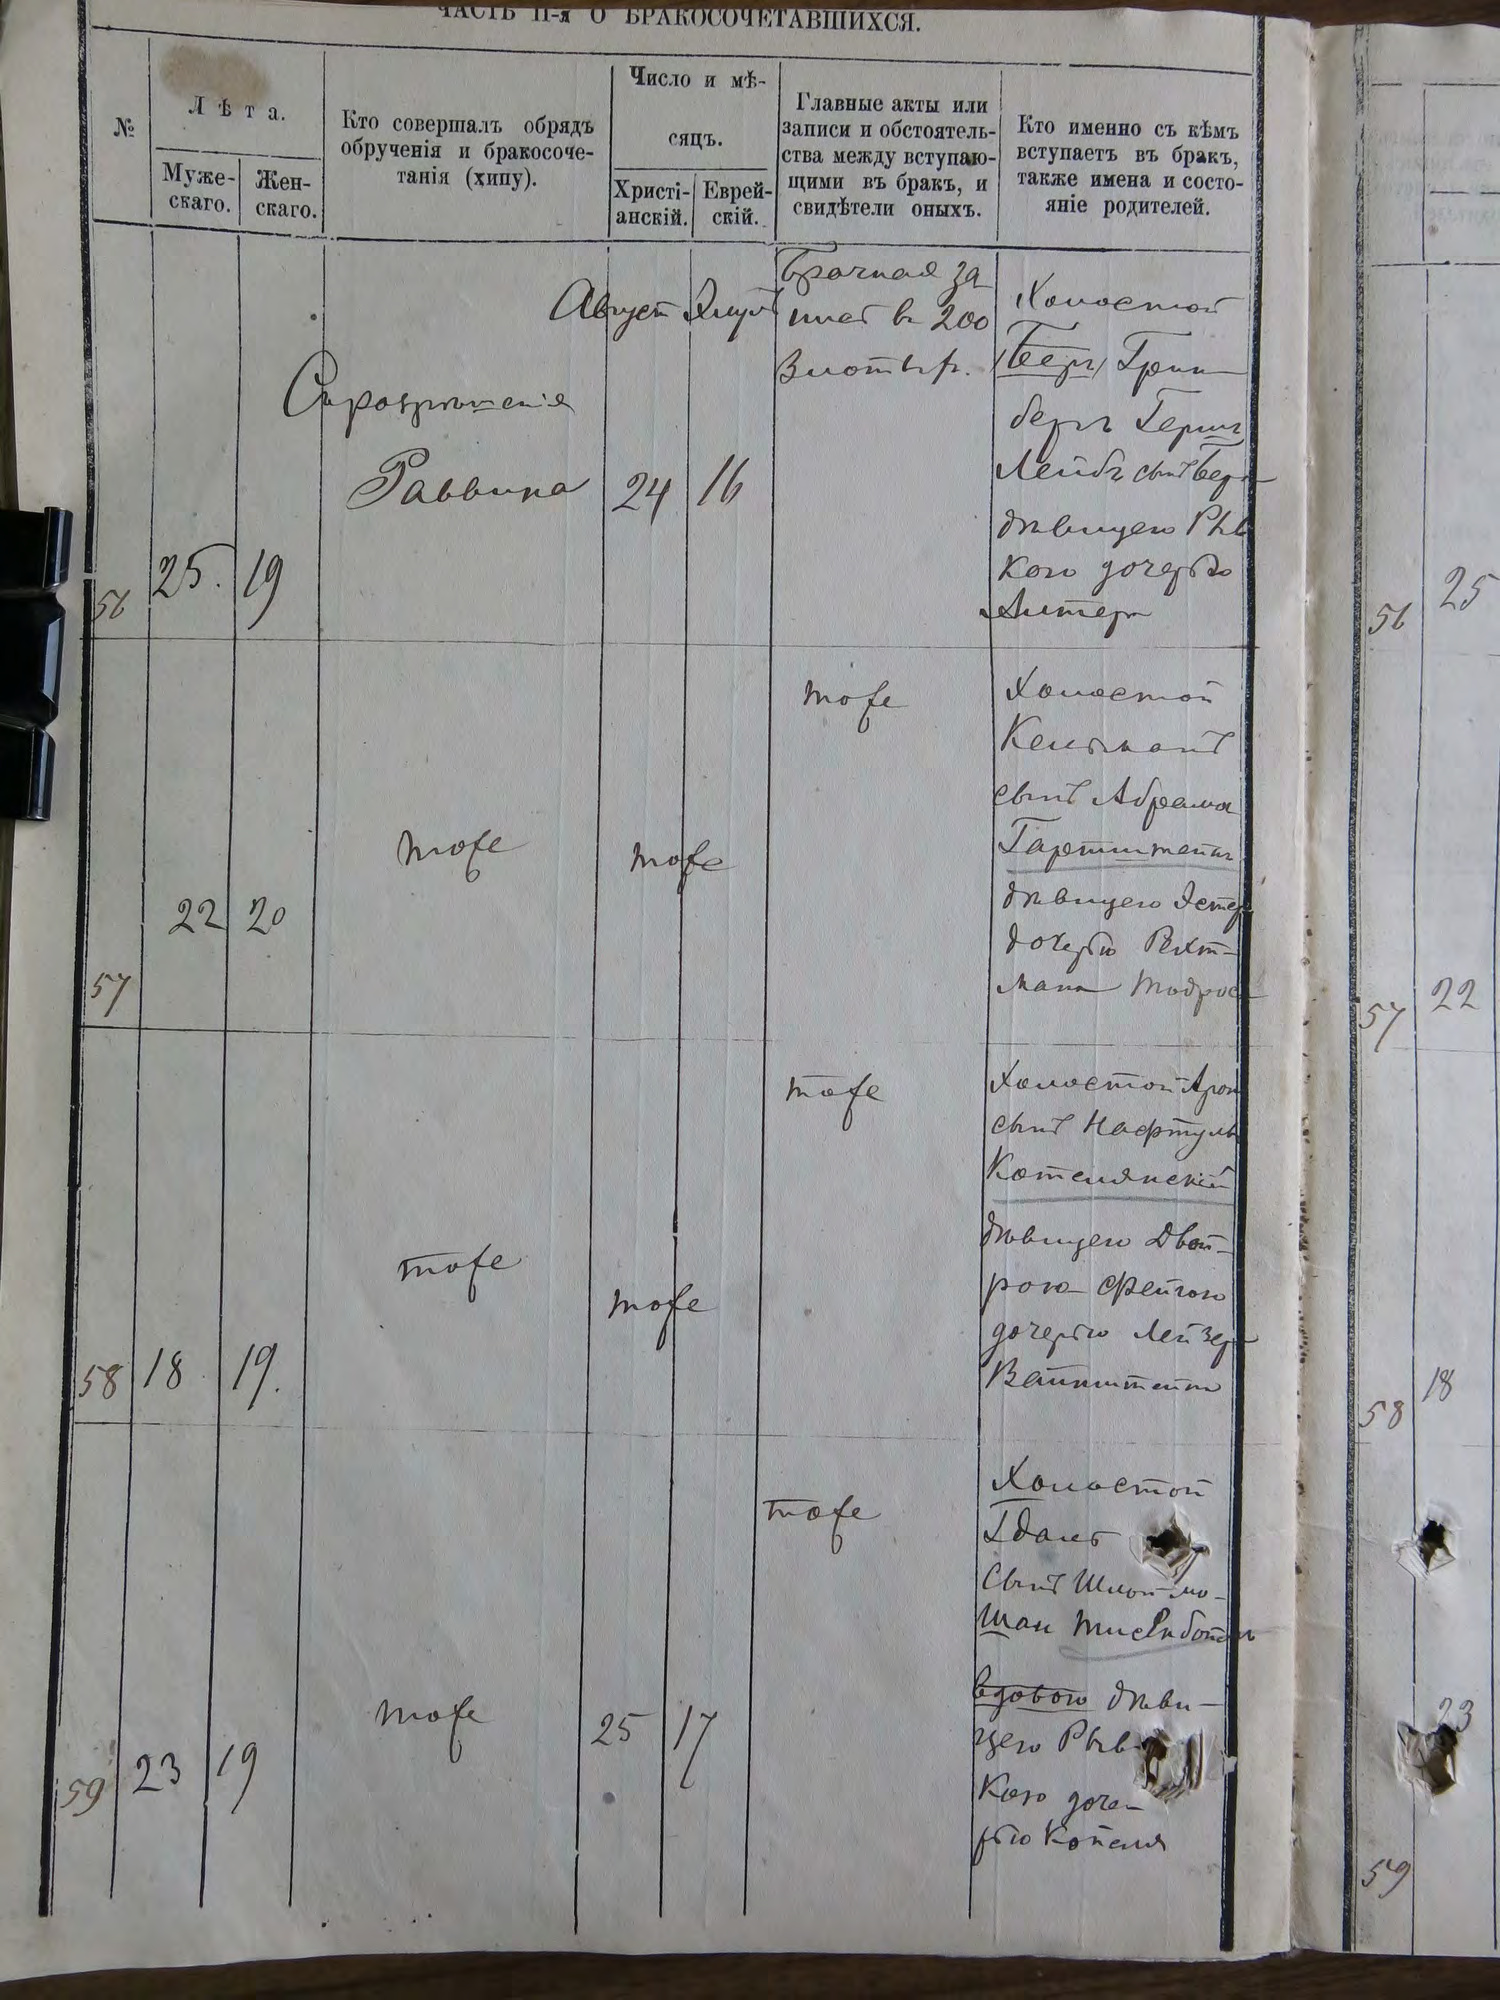 ЧАСТЬ II-я О БРАКОСОЧЕТАВШИХСЯ.
№
Лѣта.
Муже-
скаго.
Жен-
скаго.
Кто совершалъ обрядъ
обрученія и бракосоче-
танія (хипу).
Число и мѣ-
сяцъ.
Христі-
анскій.
Еврей-
скій.
Главные акты или
записи и обстоятель-
ства между вступаю-
щими въ бракъ, и
свидѣтели оныхъ.
Кто именно съ кѣмъ
вступаетъ въ бракъ,
также имена и состо-
яніе родителей.
56
25.
19
Съ разрѣшенія
Раввина
Август
24
16
Брачная за
пись в 200
Злотыхъ.
Холостой
/Беръ/ Грин
бергъ Гершъ
Лейбъ сынъ Бера
дѣвицею Рыв
кою дочерью
Альтера
57
22
20
тоже
тоже
тоже
Холостой
Кельманъ
сынъ Абрама
Гартштейнъ
дѣвицею Эстер
дочерью Рехт-
мана Тодроса
58
18
19.
тоже
тоже
тоже
Холостой Арон
сынъ Нафтуль
Котелянский
дѣвицею Двой-
рою Фейгою
дочерью Лейзера
Вайнштейна
59
23
19
тоже
25
17
тоже
Холостой
Гдаль
Сынъ Шлой-мо-
вдовою дѣви-
цею Рыв
кою доче-
рью Копеля
56
25
57
22
58
18
23
59